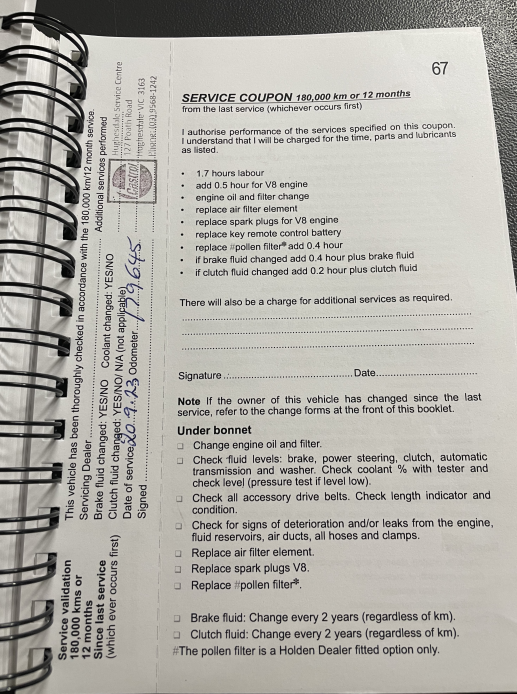 67
SERVICE COUPON 180,000 km or 12 months
from the last service (whichever occurs first)
I authorise performance of the services specified on this coupon.
I understand that I will be charged for the time, parts and lubricants
as listed.
• 1.7 hours labour
• add 0.5 hour for V8 engine
• engine oil and filter change
• replace air filter element
• replace spark plugs for V8 engine
• replace key remote control battery
• replace #pollen filter* add 0.4 hour
• if brake fluid changed add 0.4 hour plus brake fluid
• if clutch fluid changed add 0.2 hour plus clutch fluid
There will also be a charge for additional services as required.
Signature ........ Date........
Note If the owner of this vehicle has changed since the last
service, refer to the change forms at the front of this booklet.
Under bonnet
❑ Change engine oil and filter.
❑ Check fluid levels: brake, power steering, clutch, automatic
transmission and washer. Check coolant % with tester and
check level (pressure test if level low).
❑ Check all accessory drive belts. Check length indicator and
condition.
❑ Check for signs of deterioration and/or leaks from the engine,
fluid reservoirs, air ducts, all hoses and clamps.
❑ Replace air filter element.
❑ Replace spark plugs V8.
❑ Replace #pollen filter*.
❑ Brake fluid: Change every 2 years (regardless of km).
❑ Clutch fluid: Change every 2 years (regardless of km).
#The pollen filter is a Holden Dealer fitted option only.
Service validation
180,000 kms or
12 months
Since last service
(which ever occurs first)
This vehicle has been thoroughly checked in accordance with the 180,000 km/12 month service.
Servicing Dealer ........ Additional services performed
Brake fluid changed: YES/NO Coolant changed: YES/NO
Clutch fluid changed: YES/NO/ N/A (not applicable)
Date of service 20.9.23 Odometer 179645
Signed ........
Hughesdale Service Centre
127 Poath Road
Hughesdale VIC 3163
Phone: (03) 9568-1242
Castrol